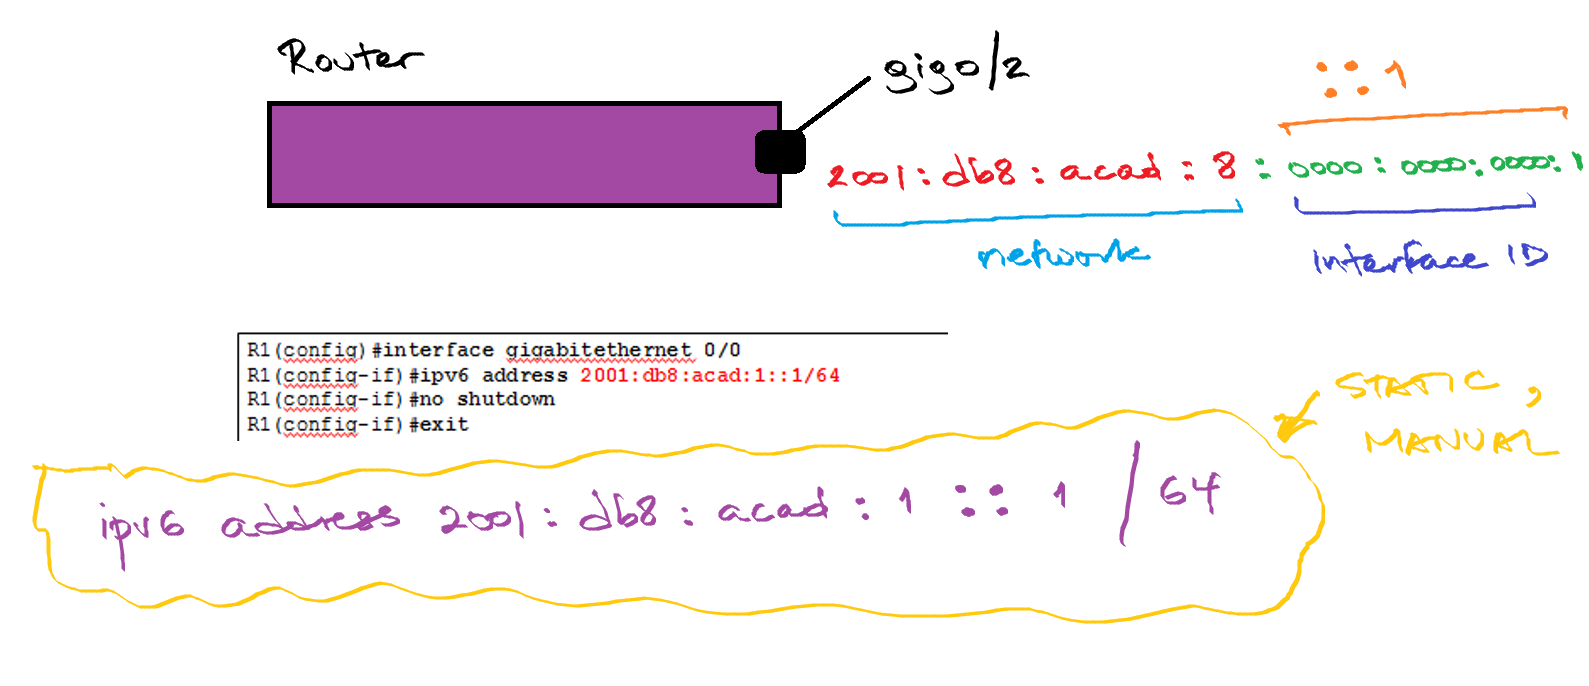 Router
gig0/2
::1
2001:db8:acad:8:0000:0000:0000:1
network
Interface ID
R1(config)#interface gigabitethernet 0/0
R1(config-if)#ipv6 address 2001:db8:acad:1::1/64
R1(config-if)#no shutdown
R1(config-if)#exit
STATIC,
MANUAL
ipv6 address 2001:db8:acad:1::1/64